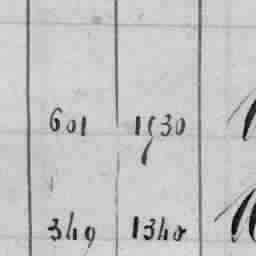 601 1530
349 1340